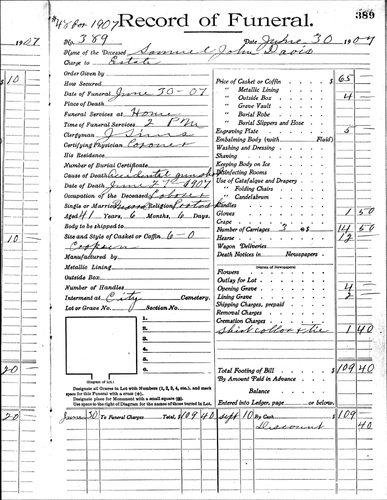 #48 for 1907
Record of Funeral.
389
1907
No. 389
Date June 30 1907
Name of the Deceased Samuel John Davis
Charge to Estate
Order Given by
How Secured
Date of Funeral June 30-07
Place of Death
Funeral Services at Home
Time of Funeral Services 2 PM
Clergyman J Sims
Certifying Physician Coroner
His Residence
Number of Burial Certificate
Cause of Death Accidental gunshot
Date of Death June 27 1907
Occupation of the Deceased Laborer
Single or Married Religion
Aged 41 Years, 6 Months, 6 Days.
Body to be shipped to
Size and Style of Casket or Coffin 6-0
Manufactured by
Metallic Lining
Outside Box
Number of Handles
Interment at City Cemetery.
Lot or Grave No. Section No.
1.
2.
3.
4.
5.
6.
(Diagram of Lot.)
Designate all Graves in Lot with Numbers (1, 2, 3, 4, etc.), and mark
space for this Funeral with a cross (+).
Designate place for Monument with a small square.
Use space to the right of Diagram for the names of those buried in Lot.
Price of Casket or Coffin 65
" Metallic Lining
" Outside Box 4
" Grave Vault
" Burial Robe
" Burial Slippers and Hose
Engraving Plate 5
Embalming Body (with Fluid)
Washing and Dressing
Shaving
Keeping Body on Ice
Disinfecting Rooms
Use of Catafalque and Drapery
" Folding Chairs
" Candelabrum
Candles
Gloves 1 50
Crape
Number of Carriages 3 @ $ 14 50
Hearse 12
Wagon Deliveries
Death Notices in Newspapers
(Names of Newspapers)
Flowers
Outlay for Lot
Opening Grave 4
Lining Grave 2
Shipping Charges, prepaid
Removal Charges
Cremation Charges
Shirt collar & tie 1 40
Total Footing of Bill $ 109 40
By Amount Paid in Advance
Balance
Entered into Ledger, page or below.
10
10
20
20
June 30 To Funeral Charges Total, $109 40 Sept 10 By Cash $109
Discount 40